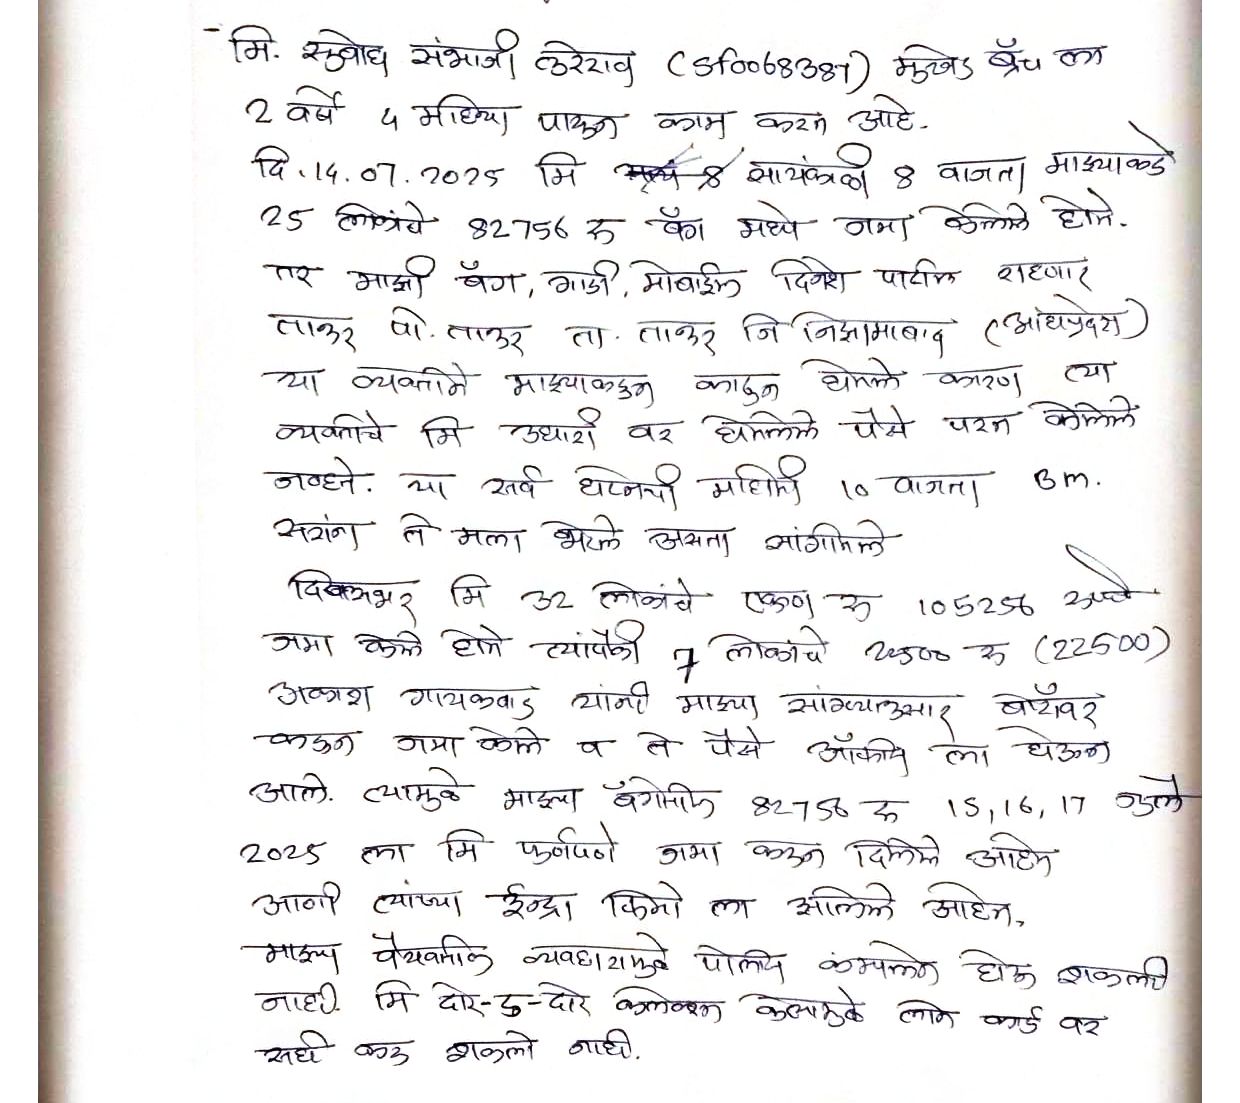 मि. सुबोध संभाजी लुरेराव (Sf0068387) मुखेड ब्रँच ला
2 वर्षे 4 महिन्या पासून काम करत आहे.
दि.14.07.2025 मि सायंकाळी 8 वाजता माझ्याकडे
25 लोकांचे 82756 रु बॅग मध्ये जमा केलेले होते.
तर माझी बॅग, गाडी, मोबाईल दिनेश पाटील राहणार
ताकुर पो. ताकुर ता. ताकुर जि निझामाबाद (आंध्रप्रदेश)
या व्यक्तीने माझ्याकडून काढुन घेतले कारण त्या
व्यक्तीचे मि उधारी वर घेतलेले पैसे परत केलेले
नव्हते. या सर्व घटनेची माहिती 10 वाजता Bm.
सरांना ते मला भेटले असता सांगीतले
दिवसभर मि 32 लोकांचे एकुण रु 105256 रुपये
जमा केले होते त्यांपैकी 7 लोकांचे 22500 रु (22500)
आकाश गायकवाड यांनी माझ्या सांगण्यानुसार बॉरोवर
कडुन जमा केले व ते पैसे ऑफीस ला घेऊन
आले. त्यामुळे माझ्या बॅगेतील 82756 रु 15,16,17 जुलै
2025 ला मि पुर्णपणे जमा करून दिलेले आहेत
आणी त्यांच्या ईन्द्रा किमो ला आलेले आहेत,
माझ्या वैयक्तीक व्यवहारामुळे पोलीस कंम्पलेन होऊ शकली
नाही. मि दोर-टु-दोर कलेक्शन केल्यामुळे लोन कार्ड वर
सही करु शकलो नाही.